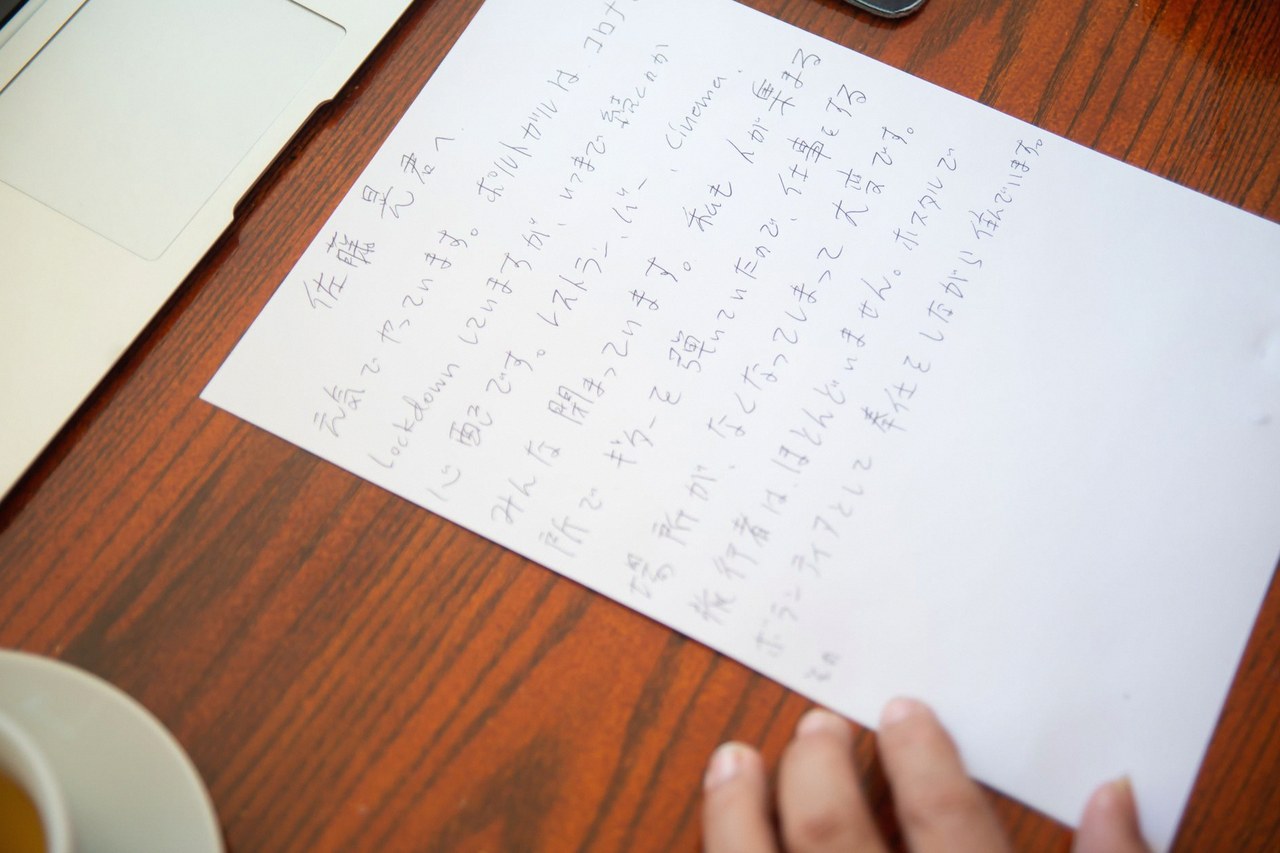 佐藤 晃君へ
元気でやっています。ポルトガルは コロナ
Lockdown していますが、いつまで続くのか
心配です。レストラン、バー、cinema.
みんな 閉まっています。私も 人が集まる
所で ギターを 弾いていたので、仕事をする
場所が、なくなってしまって 大変です。
旅行者は、ほとんどいません。ホステルで
ボランティアとして 奉仕をしながら 住んでいます。